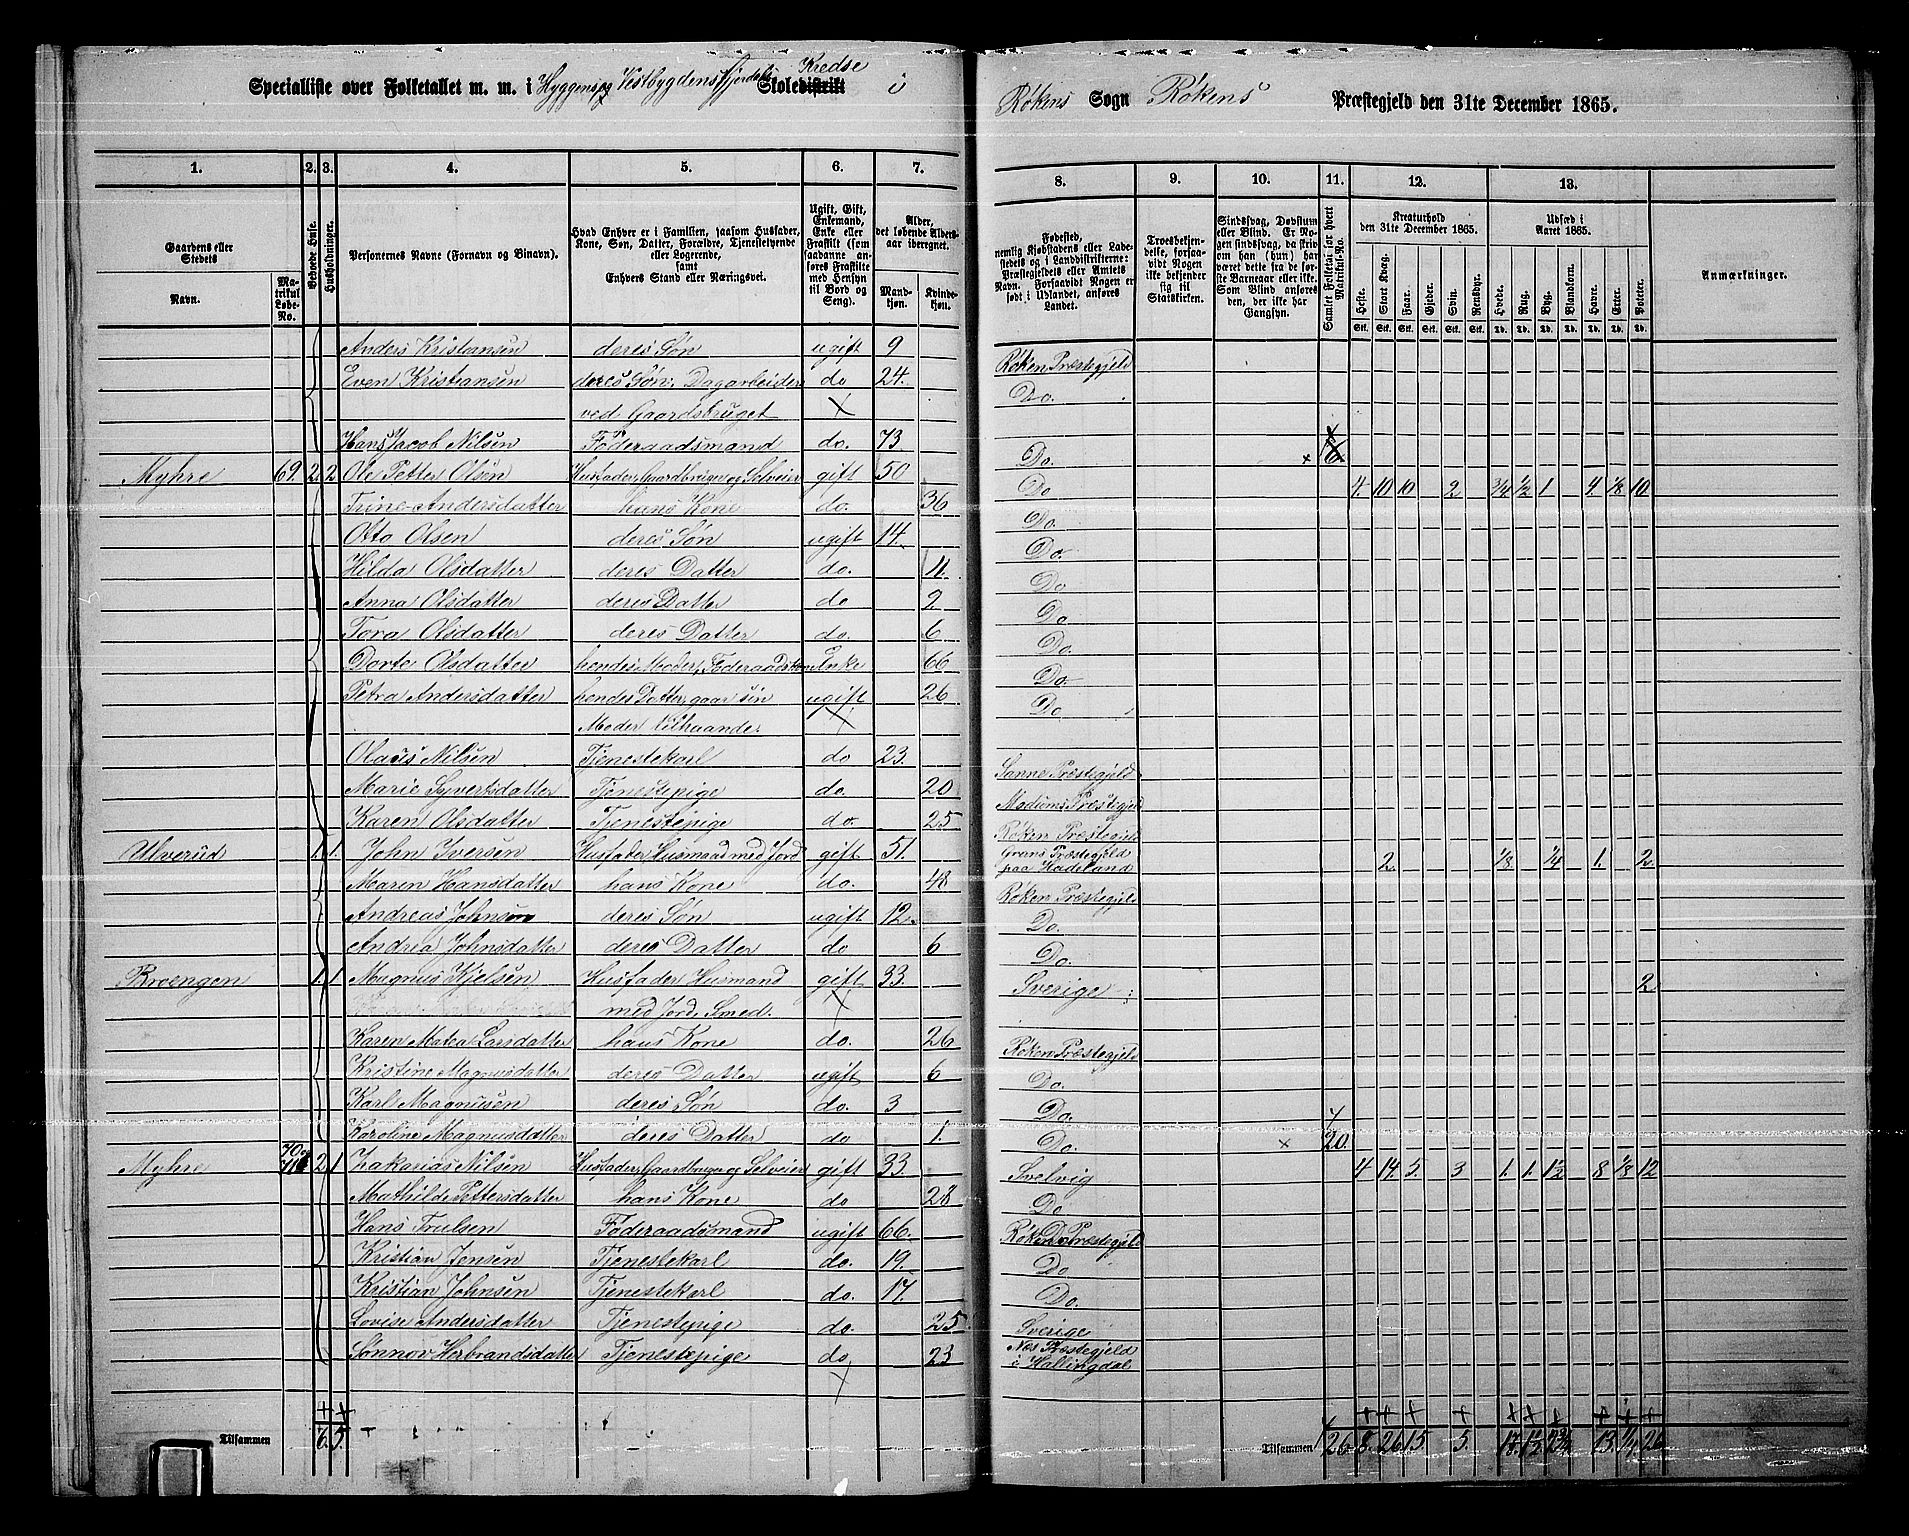 Specialliste over Folketallet m. m. i Hyggens og Vestbygdens Fjerdels Skoledistrikt Kredse i Røkens Sogn Røkens Præstegjeld den 31te December 1865.
1. 2. 3. 4. 5. 6. 7. 8. 9. 10. 11. 12. 13.
Gaardens eller Stedets Navn. Matrikul Løbe-No.
Beboede Huse.
Husholdninger.
Personernes Navne (Fornavn og Binavn).
Hvad Enhver er i Familien, saasom Husfader, Kone, Søn, Datter, Forældre, Tjenestetyende eller Logerende, samt Enhvers Stand eller Næringsvei.
Ugift, Gift, Enkemand, Enke eller Fraskilt (som saadanne anføres Fraskilte med Hensyn til Bord og Seng).
Alder, det løbende Aldersaar iberegnet. Mandkjøn. Kvindekjøn.
Fødested, nemlig Kjøbstadens eller Ladestedets og i Landdistrikterne: Præstegjeldets eller Amtets Navn. Forsaavidt Nogen er født i Udlandet, anføres Landet.
Troesbekjendelse, forsaavidt Nogen ikke bekjender sig til Statskirken.
Sindssvag, Døvstum eller Blind. Er Nogen sindssvag, da skrives om han (hun) har været dette fra de første Barneaar eller ikke. Som Blind anføres den, der ikke har Gangsyn.
Samlet Folketal for hvert Matrikul-No.
Kreaturhold den 31te December 1865. Heste. Stort Kvæg. Faar. Gjeder. Svin. Rensdyr.
Udsæd i Aaret 1865. Hvede. Rug. Byg. Blandkorn. Havre. Erter. Poteter.
Anmærkninger.
Anders Kristiansen deres Søn ugift 9 Røken Præstegjeld
Even Kristiansen deres Søn, Dagarbeider do 24. Do.
ved Gaardsbruget
Hans Jacob Nilsen Føderaadsmand do. 73 Do. × 6
Myhre 69. 2. 2 Ole Petter Olsen Husfader, Gaardbruger og Selveier gift 50 Do 4. 10 10 2 3/4 1/2 1 4. 1/8 10.
Trine Andersdatter hans Kone do. 36 Do.
Otto Olsen deres Søn ugift 14. Do.
Hilda Olsdatter deres Datter do. 11. Do
Anna Olsdatter deres Datter do 2 Do
Tora Olsdatter deres Datter do. 6 Do.
Dorte Olsdatter hendes Moder, Føderaadskone Enke 66 Do.
Petra Andersdatter hendes Datter, gaar sin ugift 26 Do
Moder tilhaande.
Olaus Nilsen Tjenestekarl do 23. Sanne Præstegjeld
Marie Syversdatter Tjenestepige do. 20 Modums Præstegjeld
Karen Olsdatter Tjenestepige do. 25 Røken Præstegjeld
Ulverud 1. 1. John Iversen Husfader Husmand med Jord gift 51. Grans Præstegjeld paa Hadeland 2. 1/8 1/4 1. 2.
Maren Hansdatter hans Kone do. 48 Røken Præstegjeld
Andreas Johnsen deres Søn ugift 12. Do.
Andrea Johnsdatter deres Datter do 6 Do.
Broengen 1. 1 Magnus Kjelsen Husfader Husmand gift 33. Sverige 2
med Jord, Smed.
Karen Matea Larsdatter hans Kone do. 26 Røken Præstegjeld
Kristine Magnusdatter deres Datter ugift 6 Do.
Karl Magnusen deres Søn do. 3 Do.
Karoline Magnusdatter deres Datter do 1. Do. × 20.
Myhre 70 og 71 2 1 Zakarias Nilsen Husfader, Gaardbruger og Selveier gift 33 Svelvig 4 14. 5. 3 1. 1. 1 1/2 8 1/8 12
Mathilde Pettersdatter hans Kone do 28 Do.
Hans Trulsen Føderaadsmand ugift 66. Røken Præstegjeld
Kristian Jensen Tjenestekarl do. 19. Do
Kristian Johnsen Tjenestekarl do. 17. Do.
Lovise Andersdatter Tjenestepige do. 25 Sverige
Sønnov Herbrandsdatter Tjenestepige do 23 Næs Præstegjeld i Hallingdal
Tilsammen 6. 5. Tilsammen 26 8. 26 15. 5. 13. 1/4 26